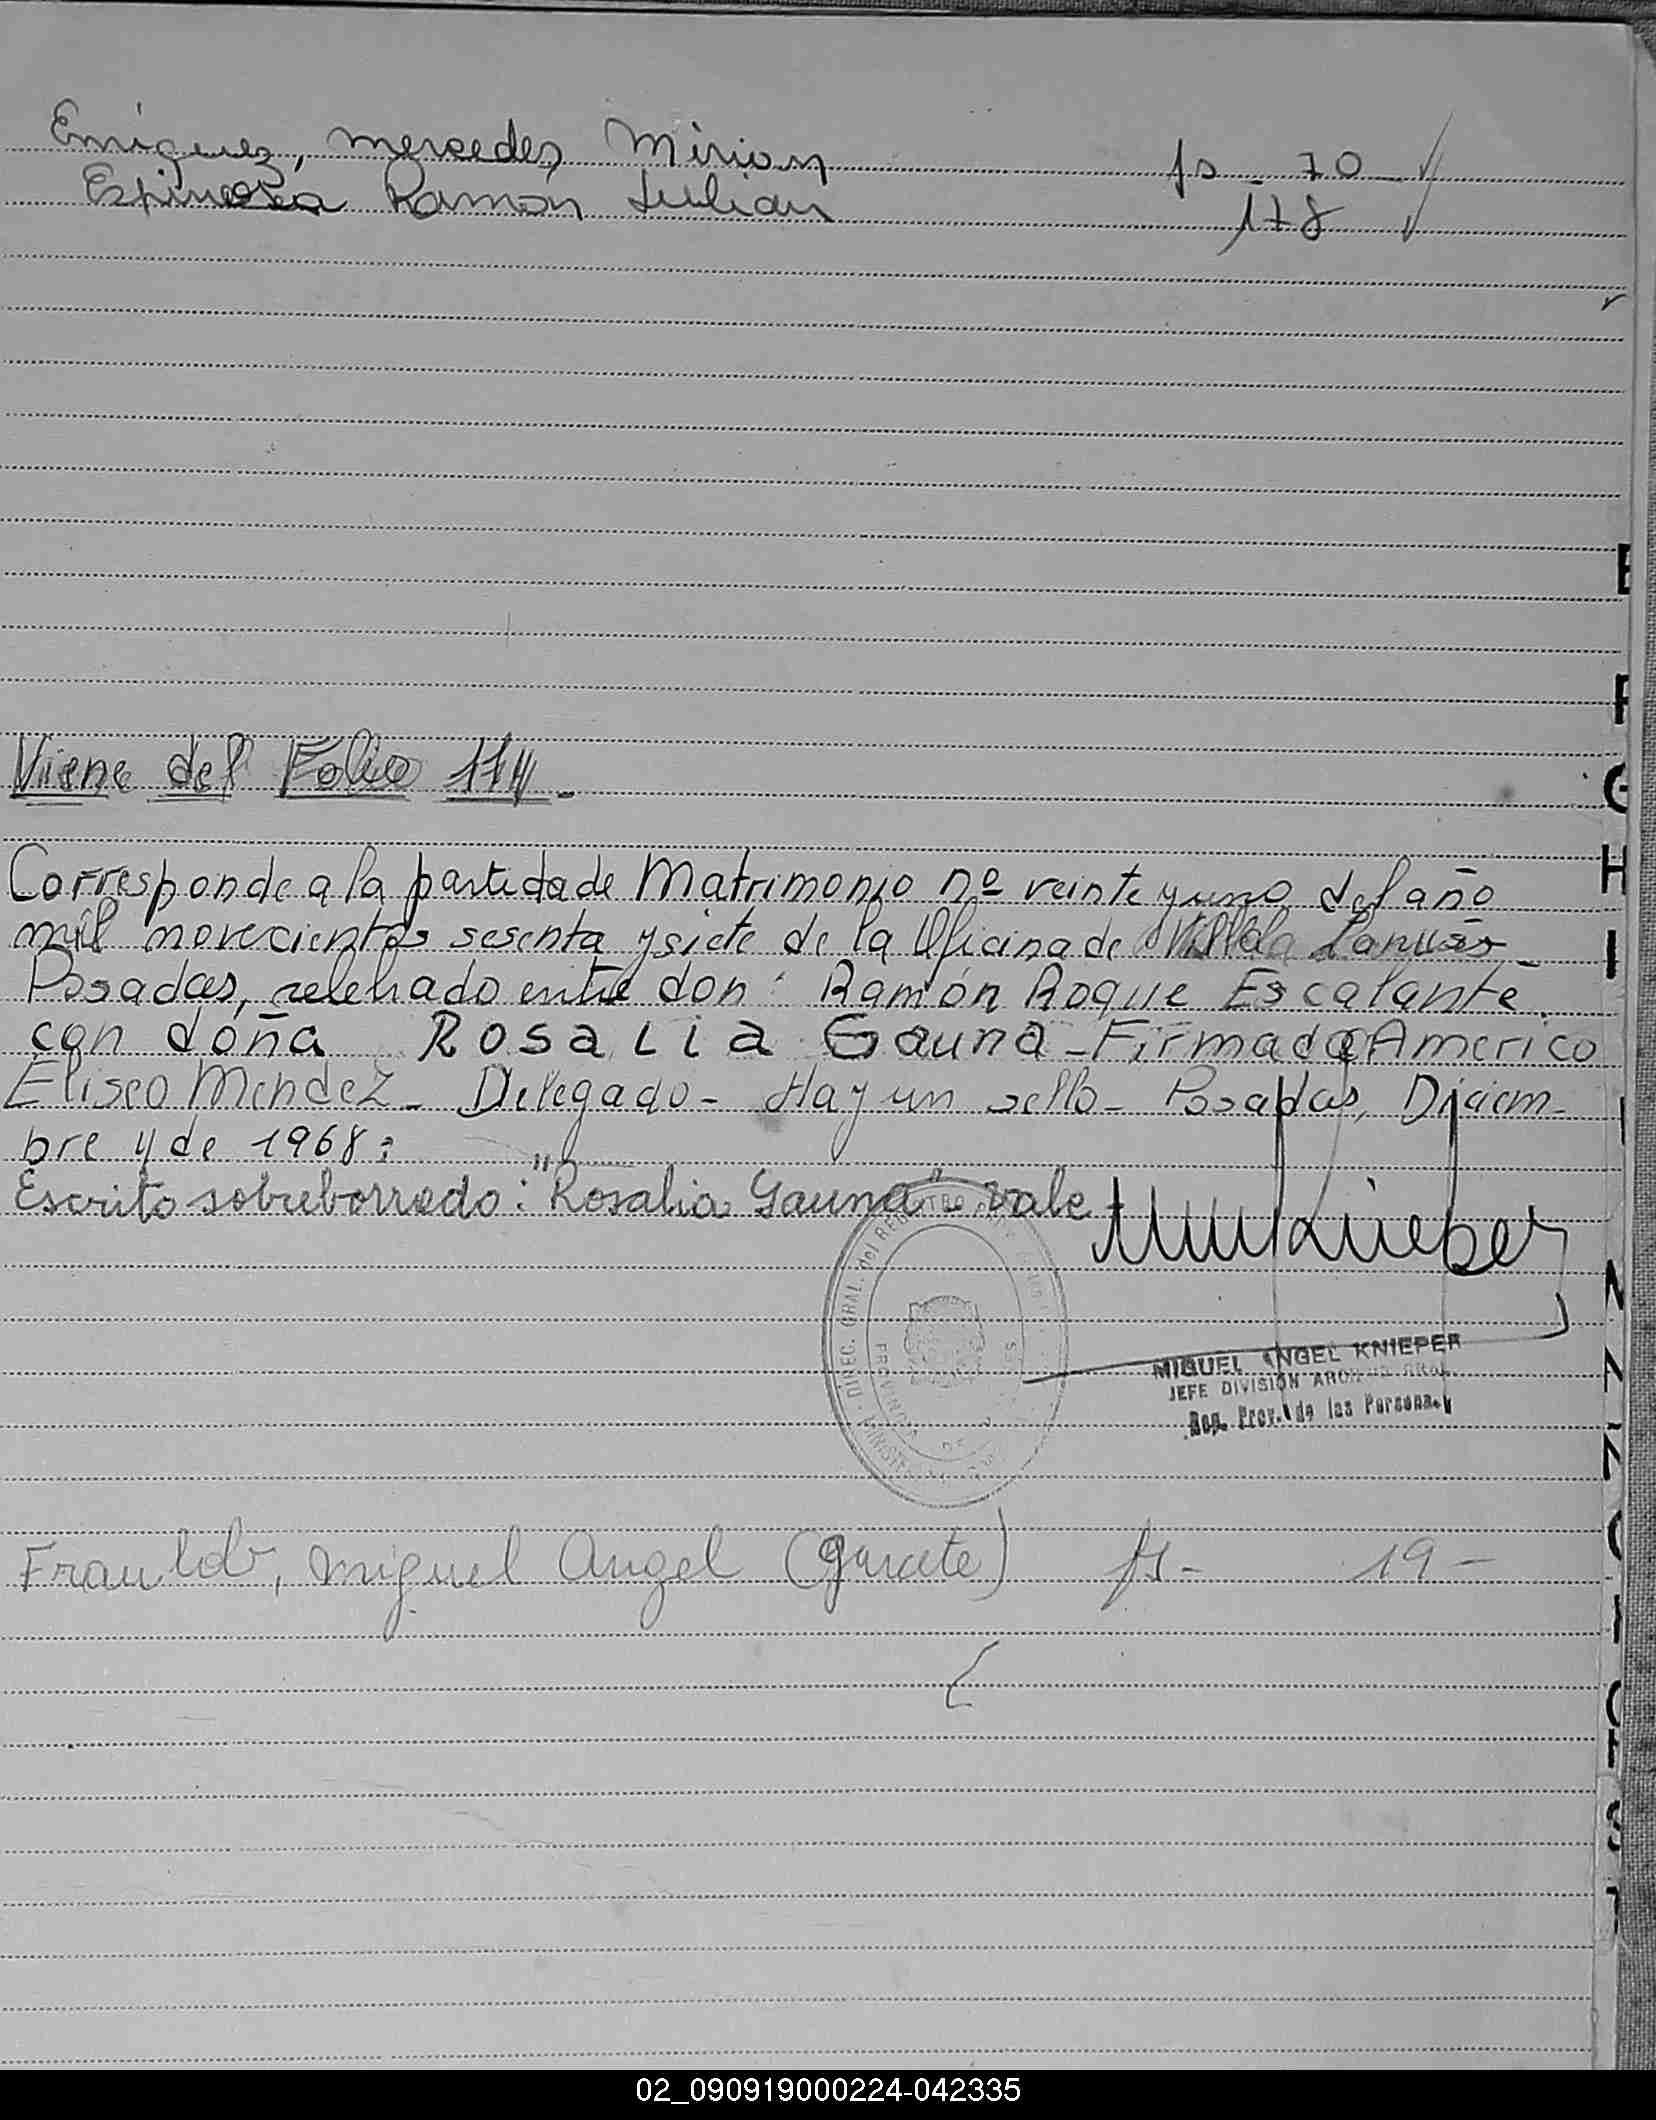 Emiguez, Mercedes Mirian fs - 70
Espinosa Ramón Julian 178
Viene del Folio 114 -
Corresponde a la partida de Matrimonio nº veinte y uno del año
mil novecientos sesenta y siete de la Oficina de Villa Lanús -
Posadas, celebrado entre don: Ramón Roque Escalante
con doña Rosalia Gauna - Firmado Americo
Eliseo Mendez - Delegado - Hay un sello - Posadas, Diciem-
bre 4 de 1968:
Escrito sobreborrado: "Rosalia Gauna" Vale
DIREC. GRAL. del REGISTRO
PROVINCIA
MIGUEL ANGEL KNIEPER
JEFE DIVISIÓN ARCHIVO GRAL.
Reg. Prov. de las Personas
Fraulob, Miguel Angel (Garcete) fs - 19 -
E
F
G
H
I
02_090919000224-042335